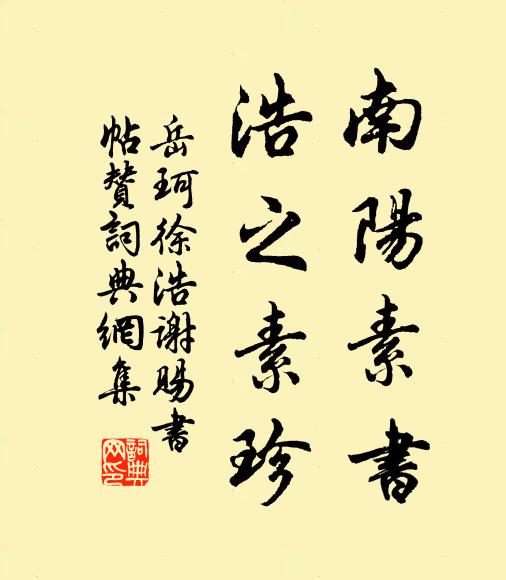 南陽素書
浩之素珍
岳珂徐浩謝賜書
帖贊詞典網集
詞典网印